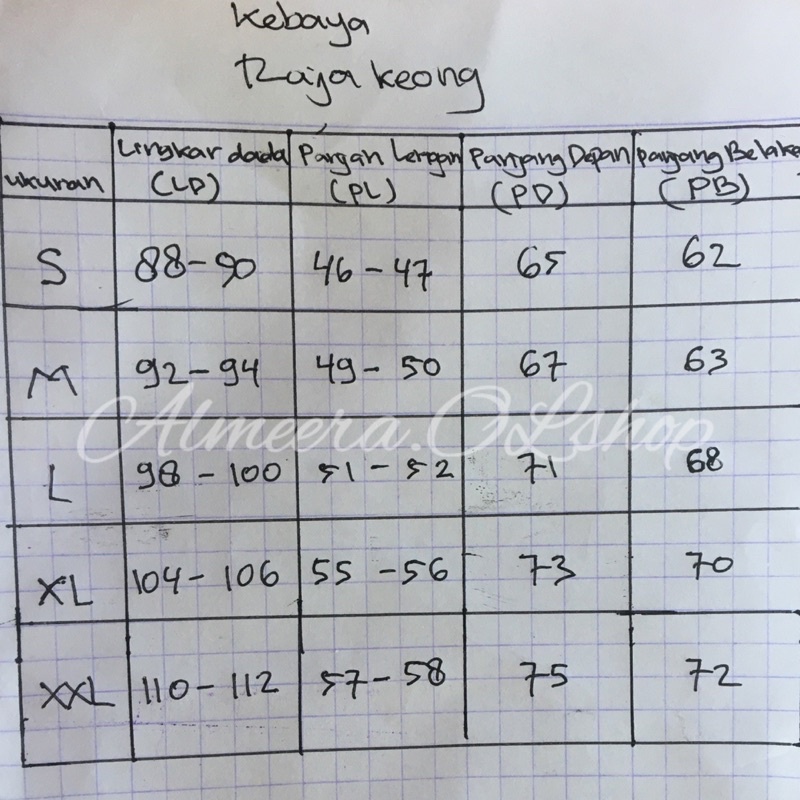 Kebaya
Raja keong
ukuran Lingkar dada (LD) Pangan Lengan (PL) Panjang Depan (PD) panjang Belaka (PB)
S 88-90 46-47 65 62
M 92-94 49-50 67 63
L 98-100 51-52 71 68
XL 104-106 55-56 73 70
XXL 110-112 57-58 75 72
Almeera.OLshop